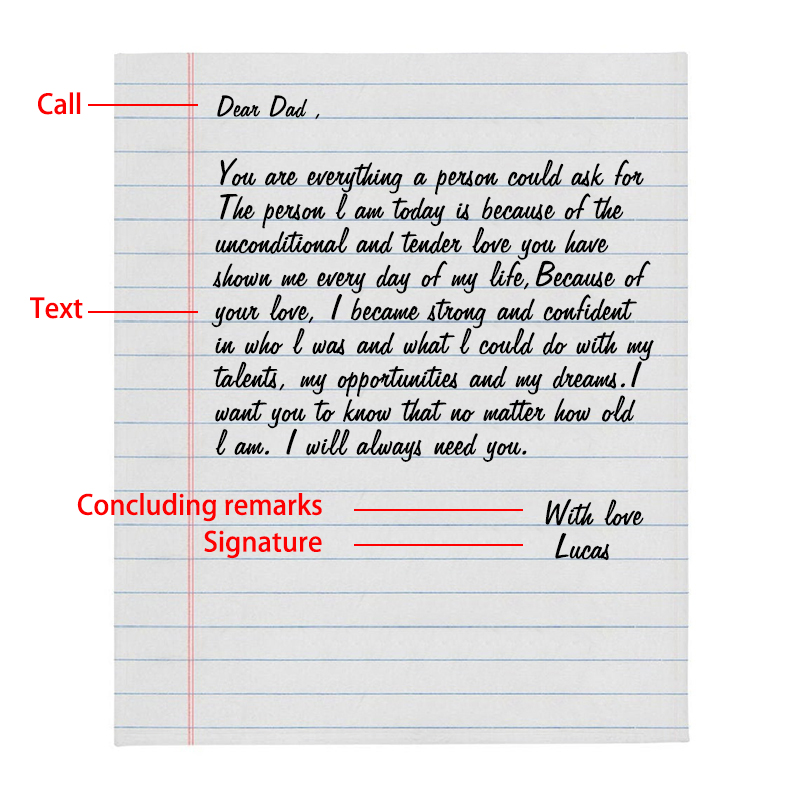 Call
Dear Dad ,
You are everything a person could ask for
The person l am today is because of the
unconditional and tender love you have
shown me every day of my life,Because of
Text
your love, I became strong and confident
in who l was and what l could do with my
talents, my opportunities and my dreams.I
want you to know that no matter how old
l am. I will always need you.
Concluding remarks
With love
Signature
Lucas